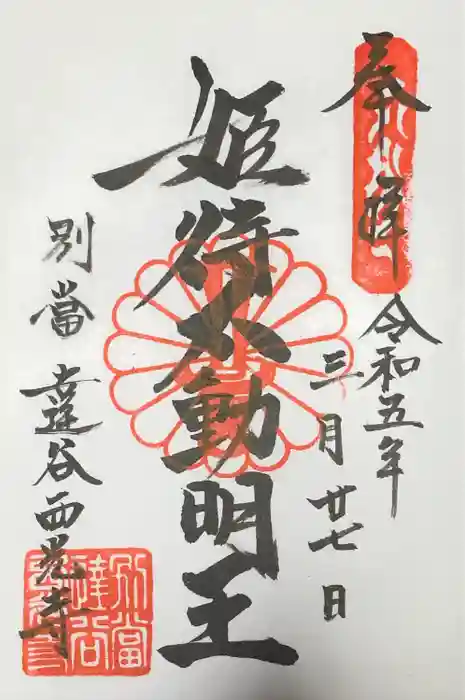 奉拝
令和五年
三月廿七日
姫待不動明王
別當
達谷西光寺
別當
達谷